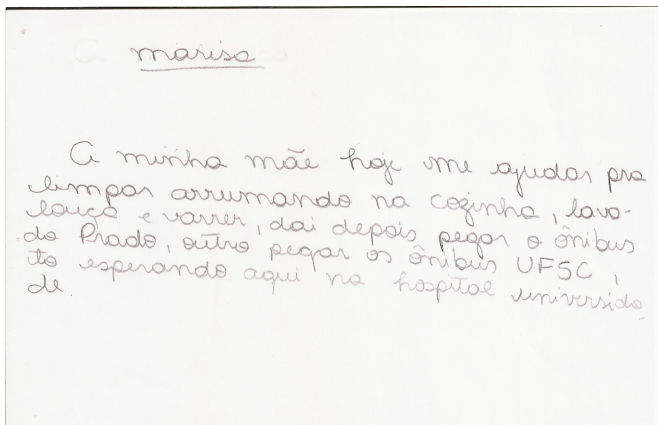 Marisa
A minha mãe hoje me ajudar pra
limpar arrumando na cozinha, lava-
louça e varrer, dai depois pegar o ônibus
do Prado, outro pegar os ônibus UFSC,
to esperando aqui na hospital universida
de.